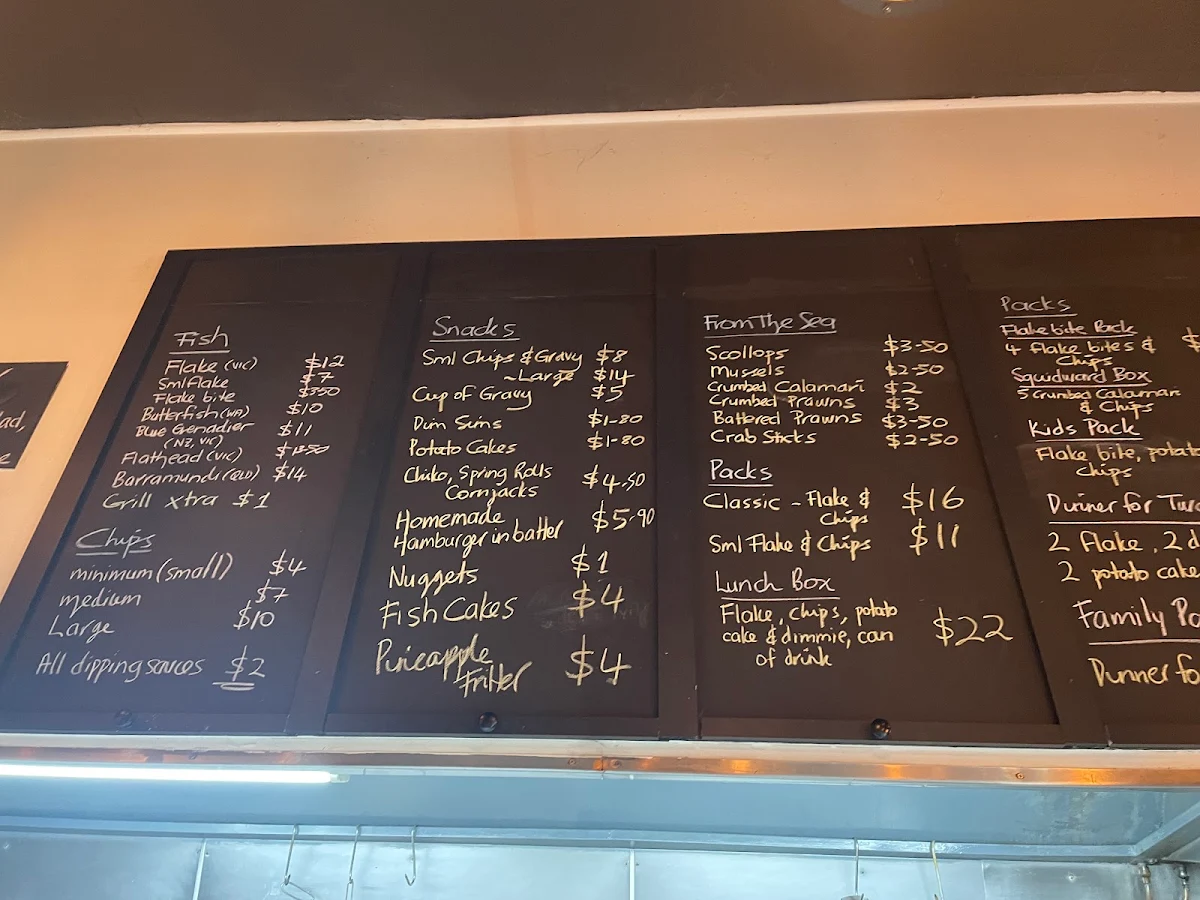 ad,
e
Fish
Flake (VIC) $12
Sml flake $7
Flake bite $350
Butterfish (WA) $10
Blue Grenadier $11
(NZ, VIC)
Flathead (VIC)
Barramundi (QLD) $14
Grill xtra $1
Chips
minimum (small) $4
medium $7
Large $10
All dipping sauces $2
Snacks
Sml Chips & Gravy $8
~Large $14
Cup of Gravy $5
Dim Sims $1-80
Potato Cakes $1-80
Chiko, Spring Rolls $4.50
Cornjacks
Homemade $5-90
Hamburger in batter
Nuggets $1
Fish Cakes $4
Pineapple $4
Fritter
From The Sea
Scollops $3-50
Mussels $2-50
Crumbed Calamari $2
Crumbed Prawns $3
Battered Prawns $3-50
Crab Sticks $2-50
Packs
Classic - Flake & $16
Chips
Sml Flake & Chips $11
Lunch Box
Flake, chips, potato
cake & dimmie, can $22
of drink
Packs
Flake bite Pack
4 flake bites & $
Chips
Squidward Box
5 crumbed Calamari
& Chips
Kids Pack
Flake bite, potato
chips
Dinner for Two
2 flake, 2 d
2 potato cake
Family Pa
Dinner fo